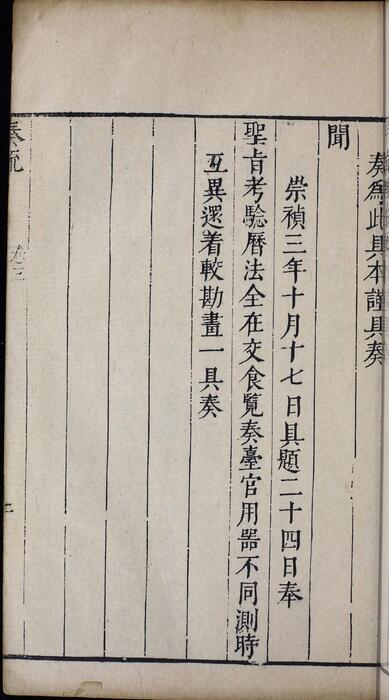 奏爲此具本謹具奏
聞
崇禎三年十月十七日具題二十四日奉
聖旨考驗曆法全在交食覽奏臺官用器不同測時
互異還着較勘畫一具奏
奏疏